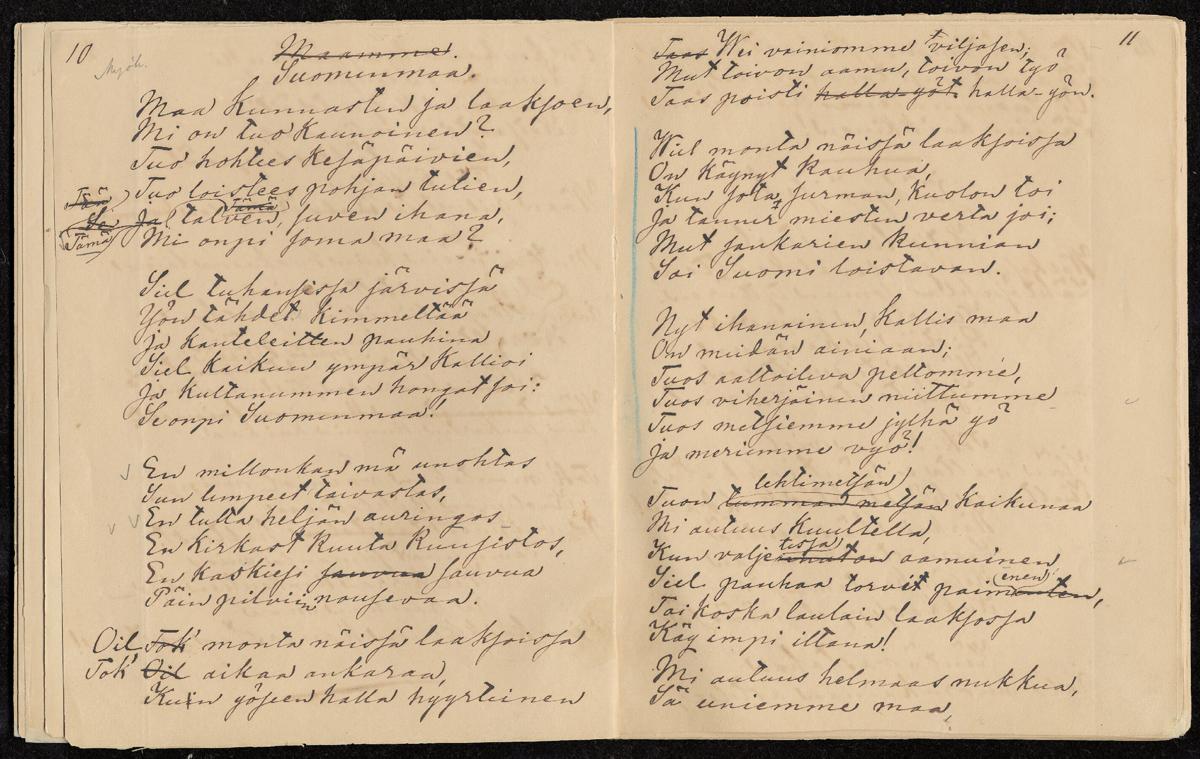 10
Maamme.
Suomenmaa.
Maa kunnasten ja laaksoen,
Mi on tuo kaunoinen?
Tuo hohtees kesäpäivien,
Tuo loistees pohjan tulien,
Ja talven, suven ihana,
Tämä
Mi onpi soma maa?
Siel tuhansissa järvissä
Yön tähdet kimmeltää
Ja kanteleitten pauhina
Siel kaikuu ympär kallioi
Ja kultanummen hongat soi:
Se onpi Suomenmaa!
En milloinkan mä unohtas
Sun lempeet taivastas,
En tulta heljän auringos
En kirkast kuuta kuusistos,
En kaskiesi sauvua sauvua
Päin pilviin nousevaa.
Oil Tok' monta näissä laaksoissa
Tok' Oil aikaa ankaraa,
Kuin yöseen halla hyyrteinen
11
Taas Wei vainiomme viljasen;
Mut toivon aamu, toivon työ
Taas poisti halla-yöt halla-yön.
Wiel monta näissä laaksoissa
On käynyt kauhua,
Kun sota, surman, kuolon toi
Ja tanner miesten verta joi;
Mut sankarien kunnian
Soi Suomi loistavan.
Nyt ihanainen, kallis maa
On meidän ainiaan;
Tuos aaltoileva peltomme,
Tuos viherjäinen niittumme
Tuos metsiemme jylhä yö
Ja meriemme vyö!
lehtimetsän
Tuon tumman metsän kaikunaa
Mi autuus kuultella,
tessa
Kun valjennaton aamuinen
enen
Siel pauhaa torvet paimenten,
Tai koska laulain laaksossa
Käy impi iltana!
Mi autuus helmaas nukkua,
Sä uniemme maa,